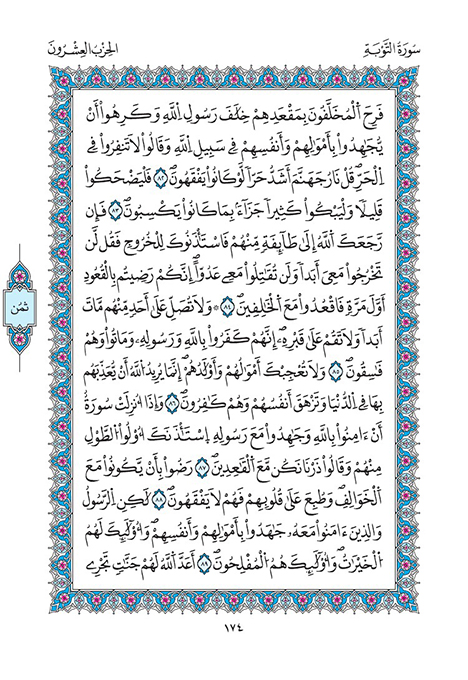 سُورَةُ التَّوْبَةِ
الحِزْبُ العِشْرُونَ
فَرِحَ اَ۬لْمُخَلَّفُونَ بِمَقْعَدِهِمْ خِلَٰفَ رَسُولِ اِ۬للَّهِ وَكَرِهُوٓاْ أَنْ
يُّجَٰهِدُواْ بِأَمْوَٰلِهِمْ وَأَنفُسِهِمْ فِے سَبِيلِ اِ۬للَّهِ وَقَالُواْ لَا تَنفِرُواْ فِے
اِ۬لْحَرِّۖ قُلْ نَارُ جَهَنَّمَ أَشَدُّ حَرّاٗ لَّوْ كَانُواْ يَفْقَهُونَۖ ٨٢ فَلْيَضْحَكُواْ
قَلِيلاٗ وَلْيَبْكُواْ كَثِيراٗ جَزَآءَۢ بِمَا كَانُواْ يَكْسِبُونَۖ ٨٣ فَإِن
رَّجَعَكَ اَ۬للَّهُ إِلَىٰ طَآئِفَةٖ مِّنْهُمْ فَاسْتَـْٔذَنُوكَ لِلْخُرُوجِ فَقُل لَّن
تَخْرُجُواْ مَعِيَ أَبَداٗ وَلَن تُقَٰتِلُواْ مَعِے عَدُوّاًۖ اِنَّكُمْ رَضِيتُم بِالْقُعُودِ
أَوَّلَ مَرَّةٖ فَاقْعُدُواْ مَعَ اَ۬لْخَٰلِفِينَۖ ٨٤ ۞ وَلَا تُصَلِّ عَلَىٰٓ أَحَدٖ مِّنْهُم مَّاتَ
أَبَداٗ وَلَا تَقُمْ عَلَىٰ قَبْرِهِۦٓۖ إِنَّهُمْ كَفَرُواْ بِاللَّهِ وَرَسُولِهِۦ وَمَاتُواْ وَهُمْ
فَٰسِقُونَۖ ٨٥ وَلَا تُعْجِبْكَ أَمْوَٰلُهُمْ وَأَوْلَٰدُهُمُۥٓۖ إِنَّمَا يُرِيدُ اُ۬للَّهُ أَنْ يُّعَذِّبَهُم
بِهَا فِے اِ۬لدُّنْيَا وَتَزْهَقَ أَنفُسُهُمْ وَهُمْ كَٰفِرُونَۖ ٨٦ وَإِذَآ أُنزِلَتْ سُورَةٌ
اَنَ اٰمِنُواْ بِاللَّهِ وَجَٰهِدُواْ مَعَ رَسُولِهِ اِ۪سْتَـْٔذَنَكَ أُوْلُواْ اُ۬لطَّوْلِ
مِنْهُمْ وَقَالُواْ ذَرْنَا نَكُن مَّعَ اَ۬لْقَٰعِدِينَۖ ٨٧ رَضُواْ بِأَنْ يَّكُونُواْ مَعَ
اَ۬لْخَوَالِفِ وَطُبِعَ عَلَىٰ قُلُوبِهِمْ فَهُمْ لَا يَفْقَهُونَۖ ٨٨ لَٰكِنِ اِ۬لرَّسُولُ
وَالذِينَ ءَامَنُواْ مَعَهُۥ جَٰهَدُواْ بِأَمْوَٰلِهِمْ وَأَنفُسِهِمْۖ وَأُوْلَٰٓئِكَ لَهُمُ
اُ۬لْخَيْرَٰتُۖ وَأُوْلَٰٓئِكَ هُمُ اُ۬لْمُفْلِحُونَۖ ٨٩ أَعَدَّ اَ۬للَّهُ لَهُمْ جَنَّٰتٖ تَجْرِے
ثُمُن
١٧٤